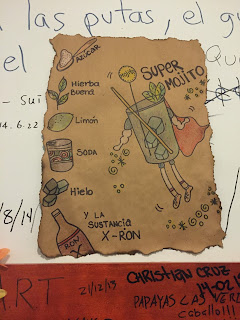 las putas, el
el
AZUCAR
SUPER
MOJITO
Hierba
Buena
Limón
SODA
Hielo
Y LA
SUSTANCIA
X-RON
RON
X
14.6.22
/8/14
ART
21/12/13
CHRISTIAN CRUZ
14-02-1
PAPAYAS LAS VER
caballo!!!